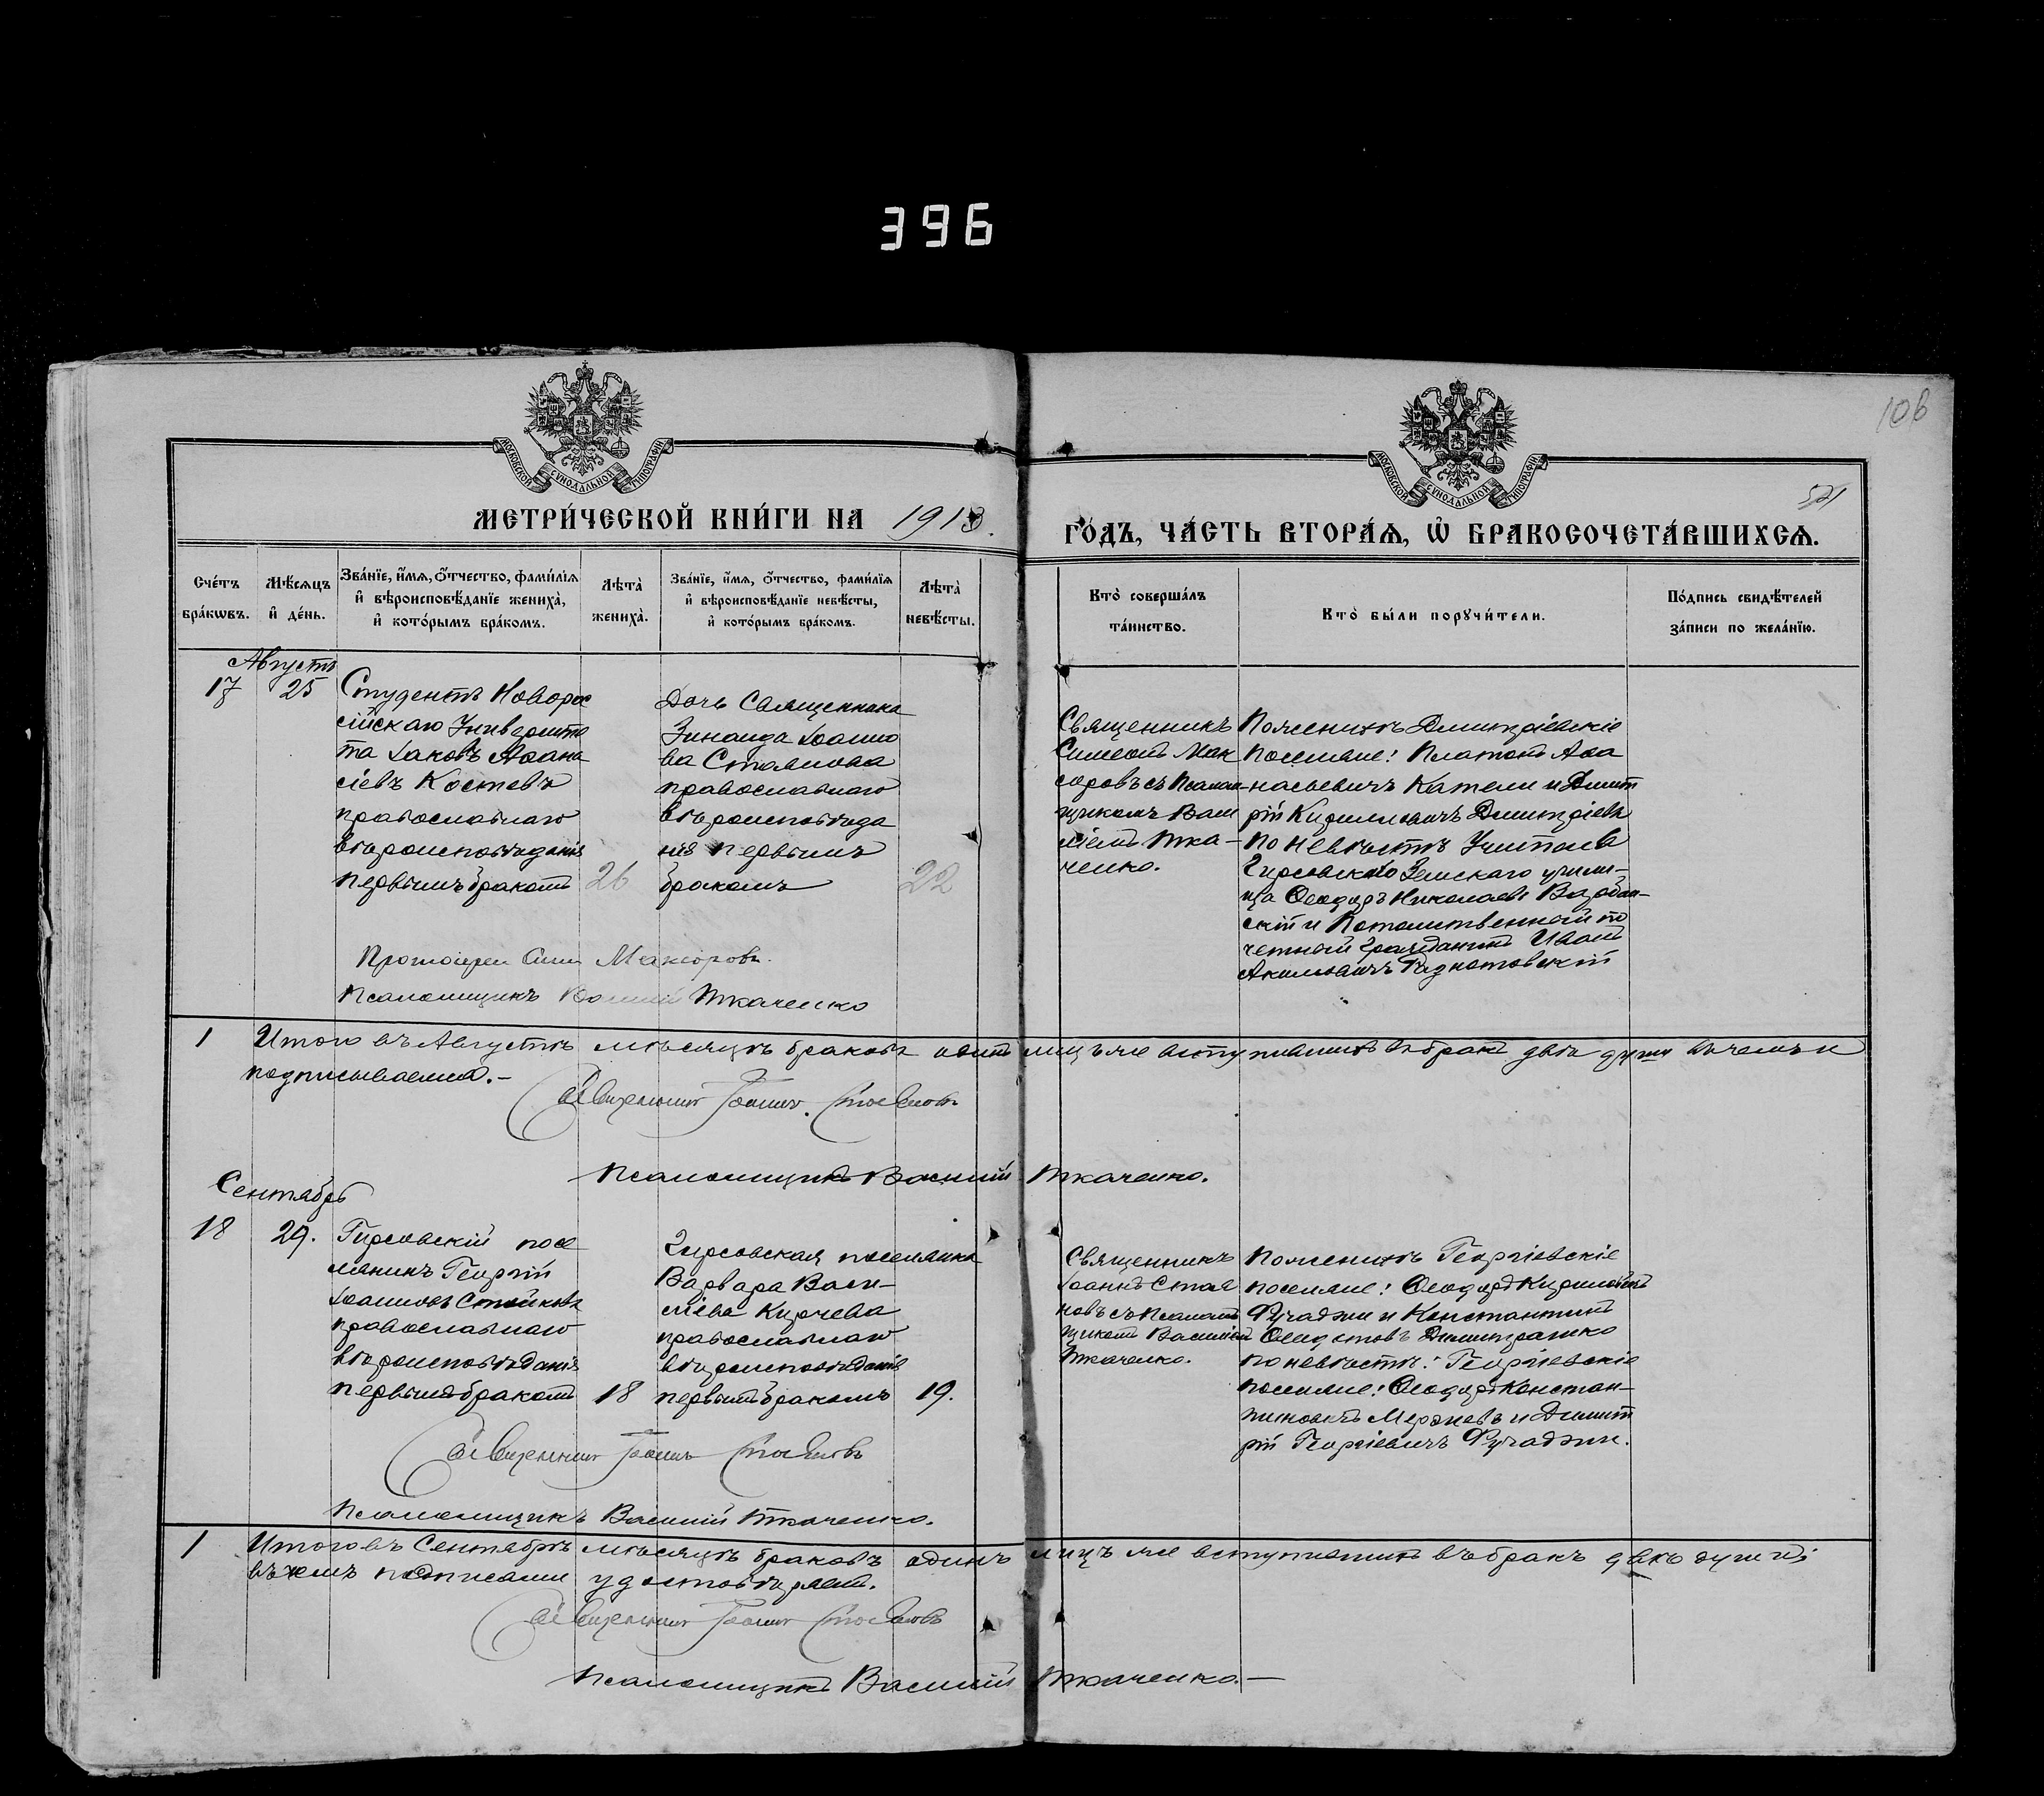 396
106
521
МОСКОВСКОЙ СѴНОДАЛЬНОЙ ТИПОГРАФІИ
МОСКОВСКОЙ СѴНОДАЛЬНОЙ ТИПОГРАФІИ
МЕТРИ́ЧЕСКОЙ КНИ́ГИ НА 1913.
ГО́ДЪ, ЧА́СТЬ ВТОРА́Ѧ, Ѡ҆ БРАКОСОЧЕТА́ВШИХСѦ.
Сче́тъ
бра́кѡвъ.
Мѣ́сѧцъ
и҆ де́нь.
Зва́нїе, и҆́мѧ, о҆́тчество, фами́лїѧ
и҆ вѣроисповѣ́данїе жениха̀,
и҆ кото́рымъ бра́комъ.
Лѣта̀
жениха̀.
Зва́нїе, и҆́мѧ, о҆́тчество, фами́лїѧ
и҆ вѣроисповѣ́данїе невѣ́сты,
и҆ кото́рымъ бра́комъ.
Лѣта̀
невѣ́сты.
Кто̀ соверша́лъ
та́инство.
Кто̀ бы́ли порꙋчи́тели.
По́дпись свидѣ́телей
за́писи по жела́нїю.
Августъ
17
25
Студентъ Новорос
сійскаго Университе
та Іаковъ Аѳана
сіевъ Костевъ
православнаго
вѣроисповѣданія
первымъ бракомъ
26
Дочь Священника
Зинаида Іоанно
ва Стоянова
православнаго
вѣроисповѣда
нія первымъ
бракомъ
22
Священникъ
Симеонъ Мак
соровъ съ Псалом-
щикомъ Васи
ліемъ Тка-
ченко.
По женихѣ Димитріевскіе
поселяне: Платонъ Аѳа
насьевичъ Катели и Димит
рій Кирилловичъ Димитріевъ
по невѣстѣ Учитель
Гирсовскаго Земскаго учили-
ща Ѳеодоръ Николаевъ
скій и Потомственный по
четный гражданинъ Иванъ
Акимовичъ
Протоіерей Сим Максоровъ.
Псаломщикъ Василій Ткаченко
1
Итого въ Августѣ мѣсяцѣ браковъ одинъ лицъ же вступившихъ въ бракъ двѣ души въ чемъ и
подписываемся.-
Священникъ Іоаннъ Стояновъ
Псаломщикъ Василій Ткаченко.
Сентябрь
18
29.
Гирсовскій посе
лянинъ Георгій
Іоанновъ Стойковъ
православнаго
вѣроисповѣданія
первымъ бракомъ
18
Гирсовская поселянка
Варвара Васи-
ліева Курчева
православнаго
вѣроисповѣданія
первымъ бракомъ
19.
Священникъ
Іоаннъ Стоя
новъ съ Псалом
щикомъ Василіем
Ткаченко.
По женихѣ Георгіевскіе
поселяне: Ѳеодоръ Кирилловичъ
Фучаджи и Константинъ
Димитрашко
по невѣстѣ: Георгіевскіе
поселяне: Ѳеодоръ Констан-
тиновичъ и Димит
рій Георгіевичъ Фучаджи.
Священникъ Іоаннъ Стояновъ
Псаломщикъ Василій Ткаченко.
1
Итого въ Сентябрѣ мѣсяцѣ браковъ одинъ лицъ же вступившихъ въ бракъ двѣ души
въ чемъ подписами удостовѣряемъ.
Священникъ Іоаннъ Стояновъ
Псаломщикъ Василій Ткаченко.-